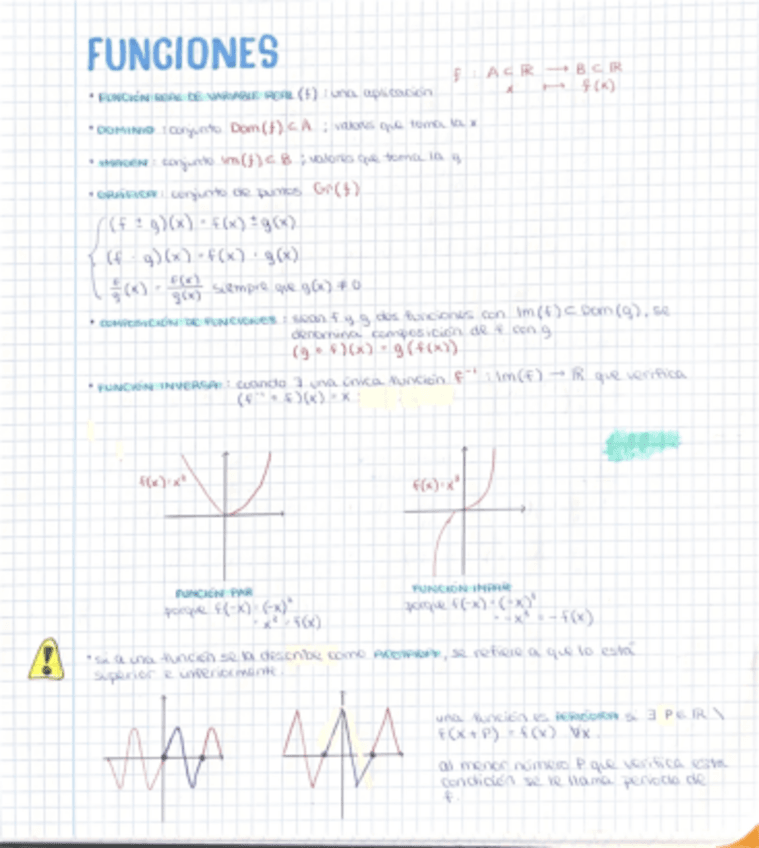 FUNCIONES
f : A ⊂ ℝ → B ⊂ ℝ
x ↦ f(x)
• FUNCIÓN REAL DE VARIABLE REAL (f) : una aplicación
• DOMINIO : conjunto Dom(f) ⊂ A ; valores que toma la x
• IMAGEN : conjunto Im(f) ⊂ B ; valores que toma la y
• GRÁFICA : conjunto de puntos Gr(f)
(f ± g)(x) = f(x) ± g(x)
(f · g)(x) = f(x) · g(x)
f/g (x) = f(x)/g(x) siempre que g(x) ≠ 0
• COMPOSICIÓN DE FUNCIONES : sean f y g dos funciones con Im(f) ⊂ Dom(g), se
denomina composición de f con g
(g ∘ f)(x) = g(f(x))
• FUNCIÓN INVERSA : cuando ∃ una única función f⁻¹ : Im(f) → ℝ que verifica
(f⁻¹ ∘ f)(x) = x
f(x) = x²
f(x) = x³
FUNCIÓN PAR
porque f(-x) = (-x)²
= x² = f(x)
FUNCIÓN IMPAR
porque f(-x) = (-x)³
= -x³ = -f(x)
• Si a una función se la describe como ACOTADA, se refiere a que lo está
superior e inferiormente.
una función es PERIÓDICA si ∃ P ∈ ℝ \
f(x+P) = f(x) ∀x.
al menor número P que verifica esta
condición se le llama periodo de
f.